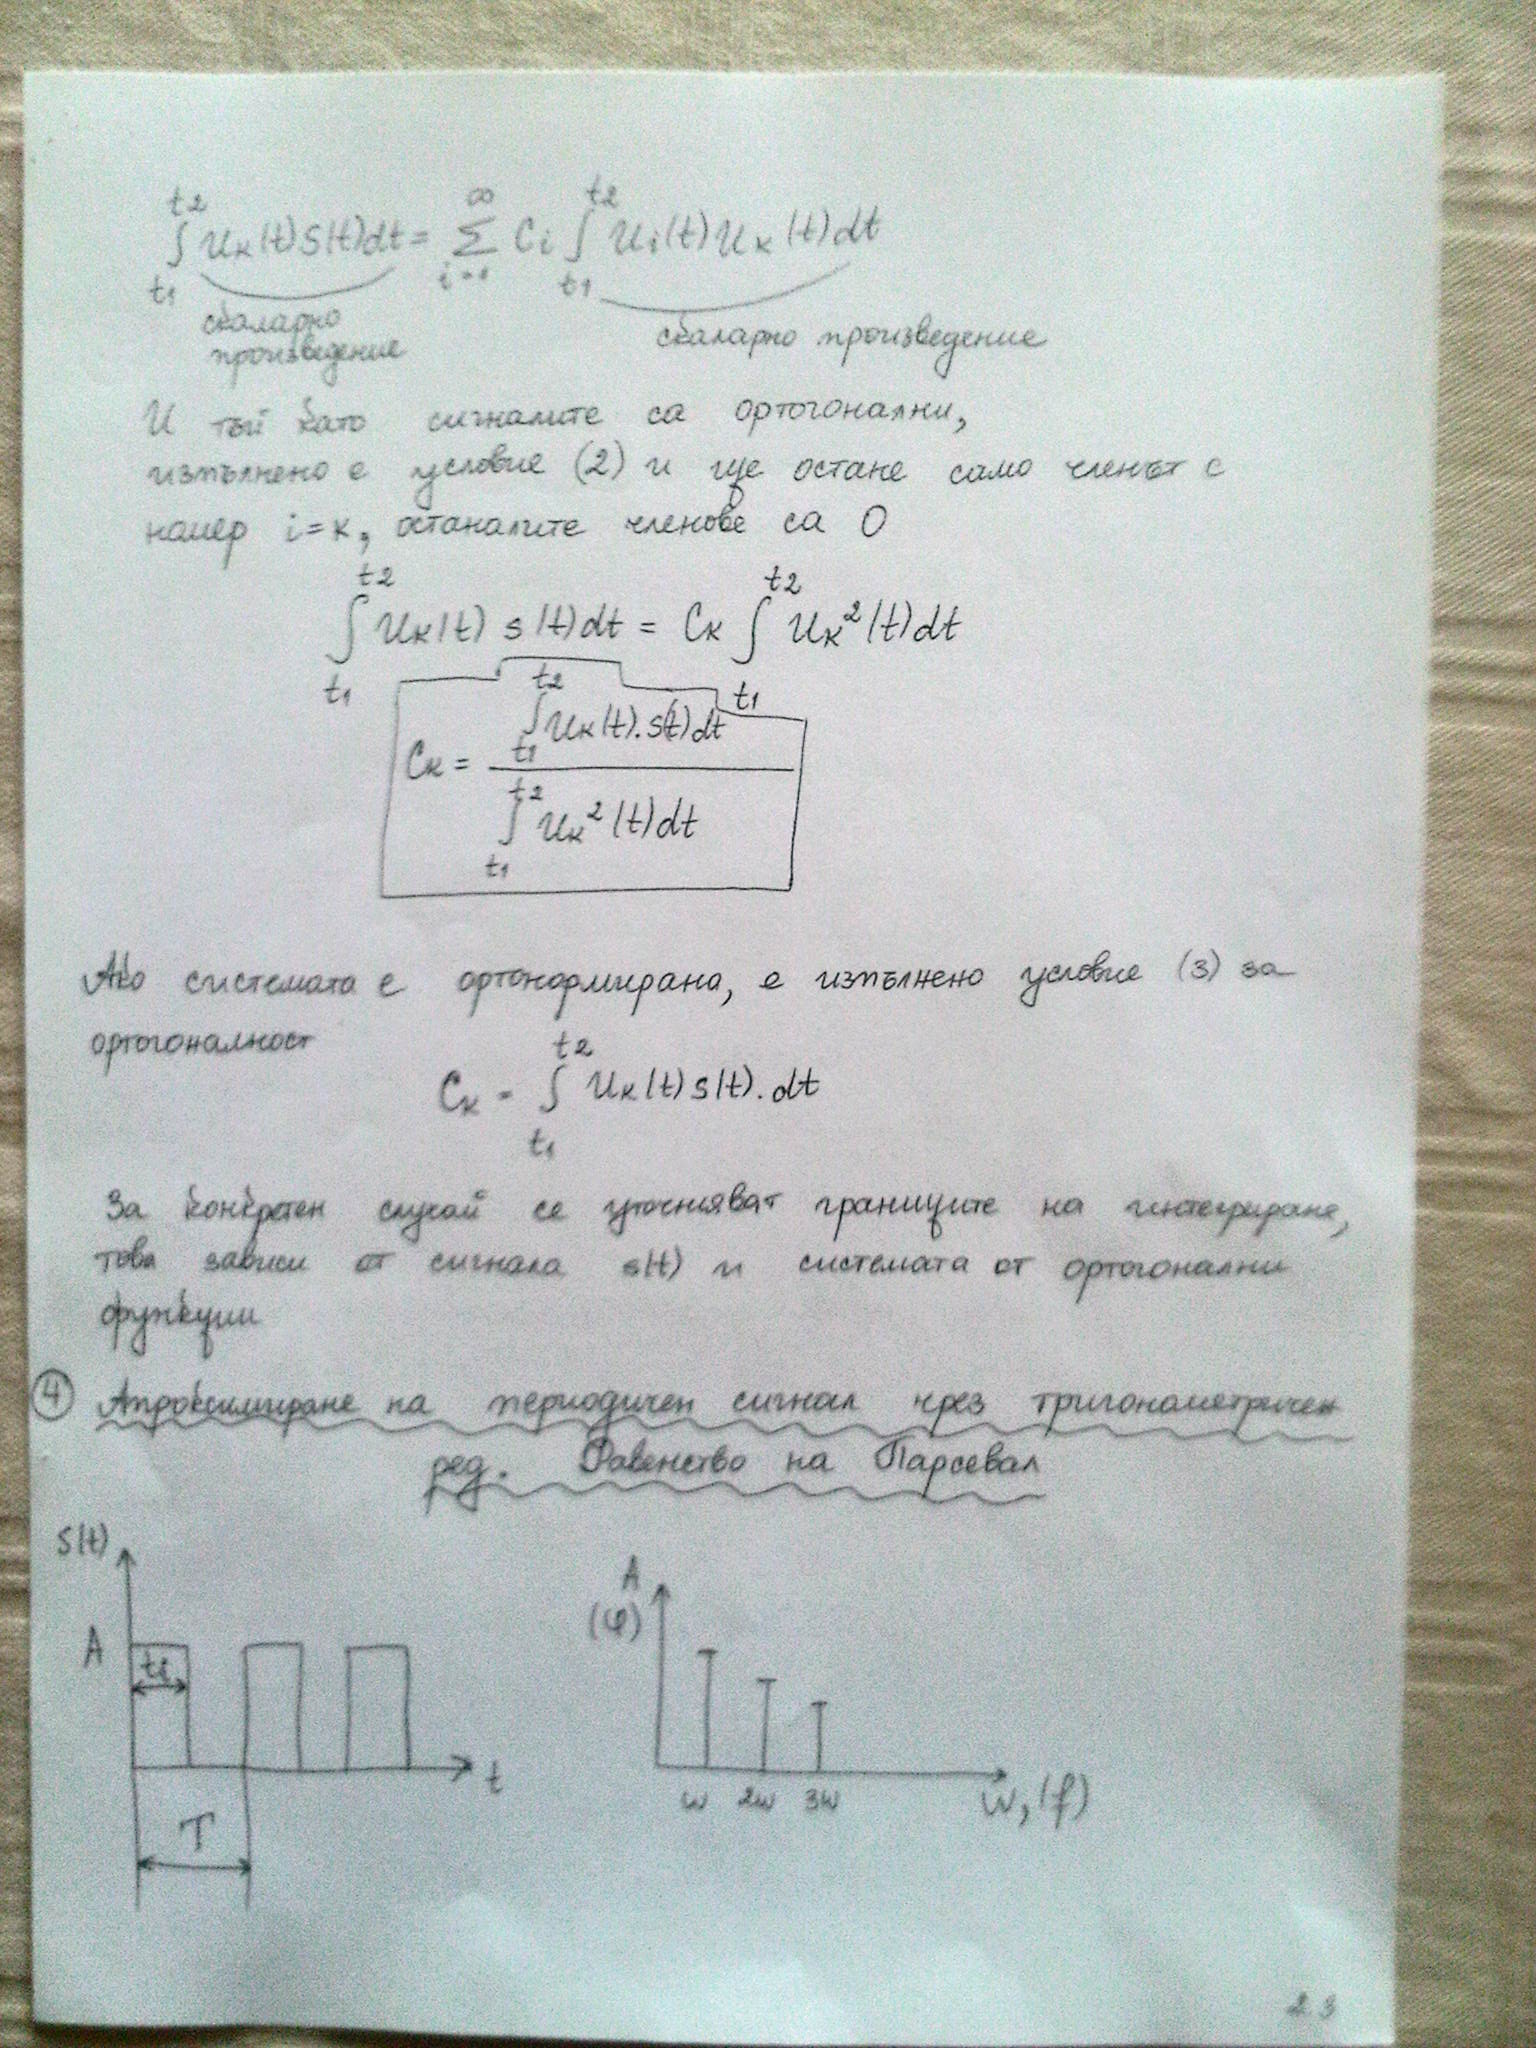 t2
∫ Uк(t)S(t)dt = ∞ Σ i=1 Ci t2 ∫ t1 Ui(t)Uк(t)dt
t1
скаларно
произведение
скаларно произведение
И тъй като сигналите са ортогонални,
изпълнено е условие (2) и ще остане само членът с
номер i=к, останалите членове са 0
t2 t2
∫ Uк(t) s(t)dt = Cк ∫ Uк²(t)dt
t1 t1
t2
∫Uк(t).s(t)dt
t1
Cк =
t2
∫ Uк²(t)dt
t1
Ако системата е ортонормирана, е изпълнено условие (3) за
ортогоналност
t2
Cк = ∫ Uк(t)s(t).dt
t1
За конкретен случай се уточняват границите на интегриране,
това зависи от сигнала s(t) и системата от ортогонални
функции
4 Апроксимиране на периодичен сигнал чрез тригонометричен
ред. Равенство на Парсевал
S(t)
A
ti
t
T
A
(φ)
w 2w 3w
w,(f)
23